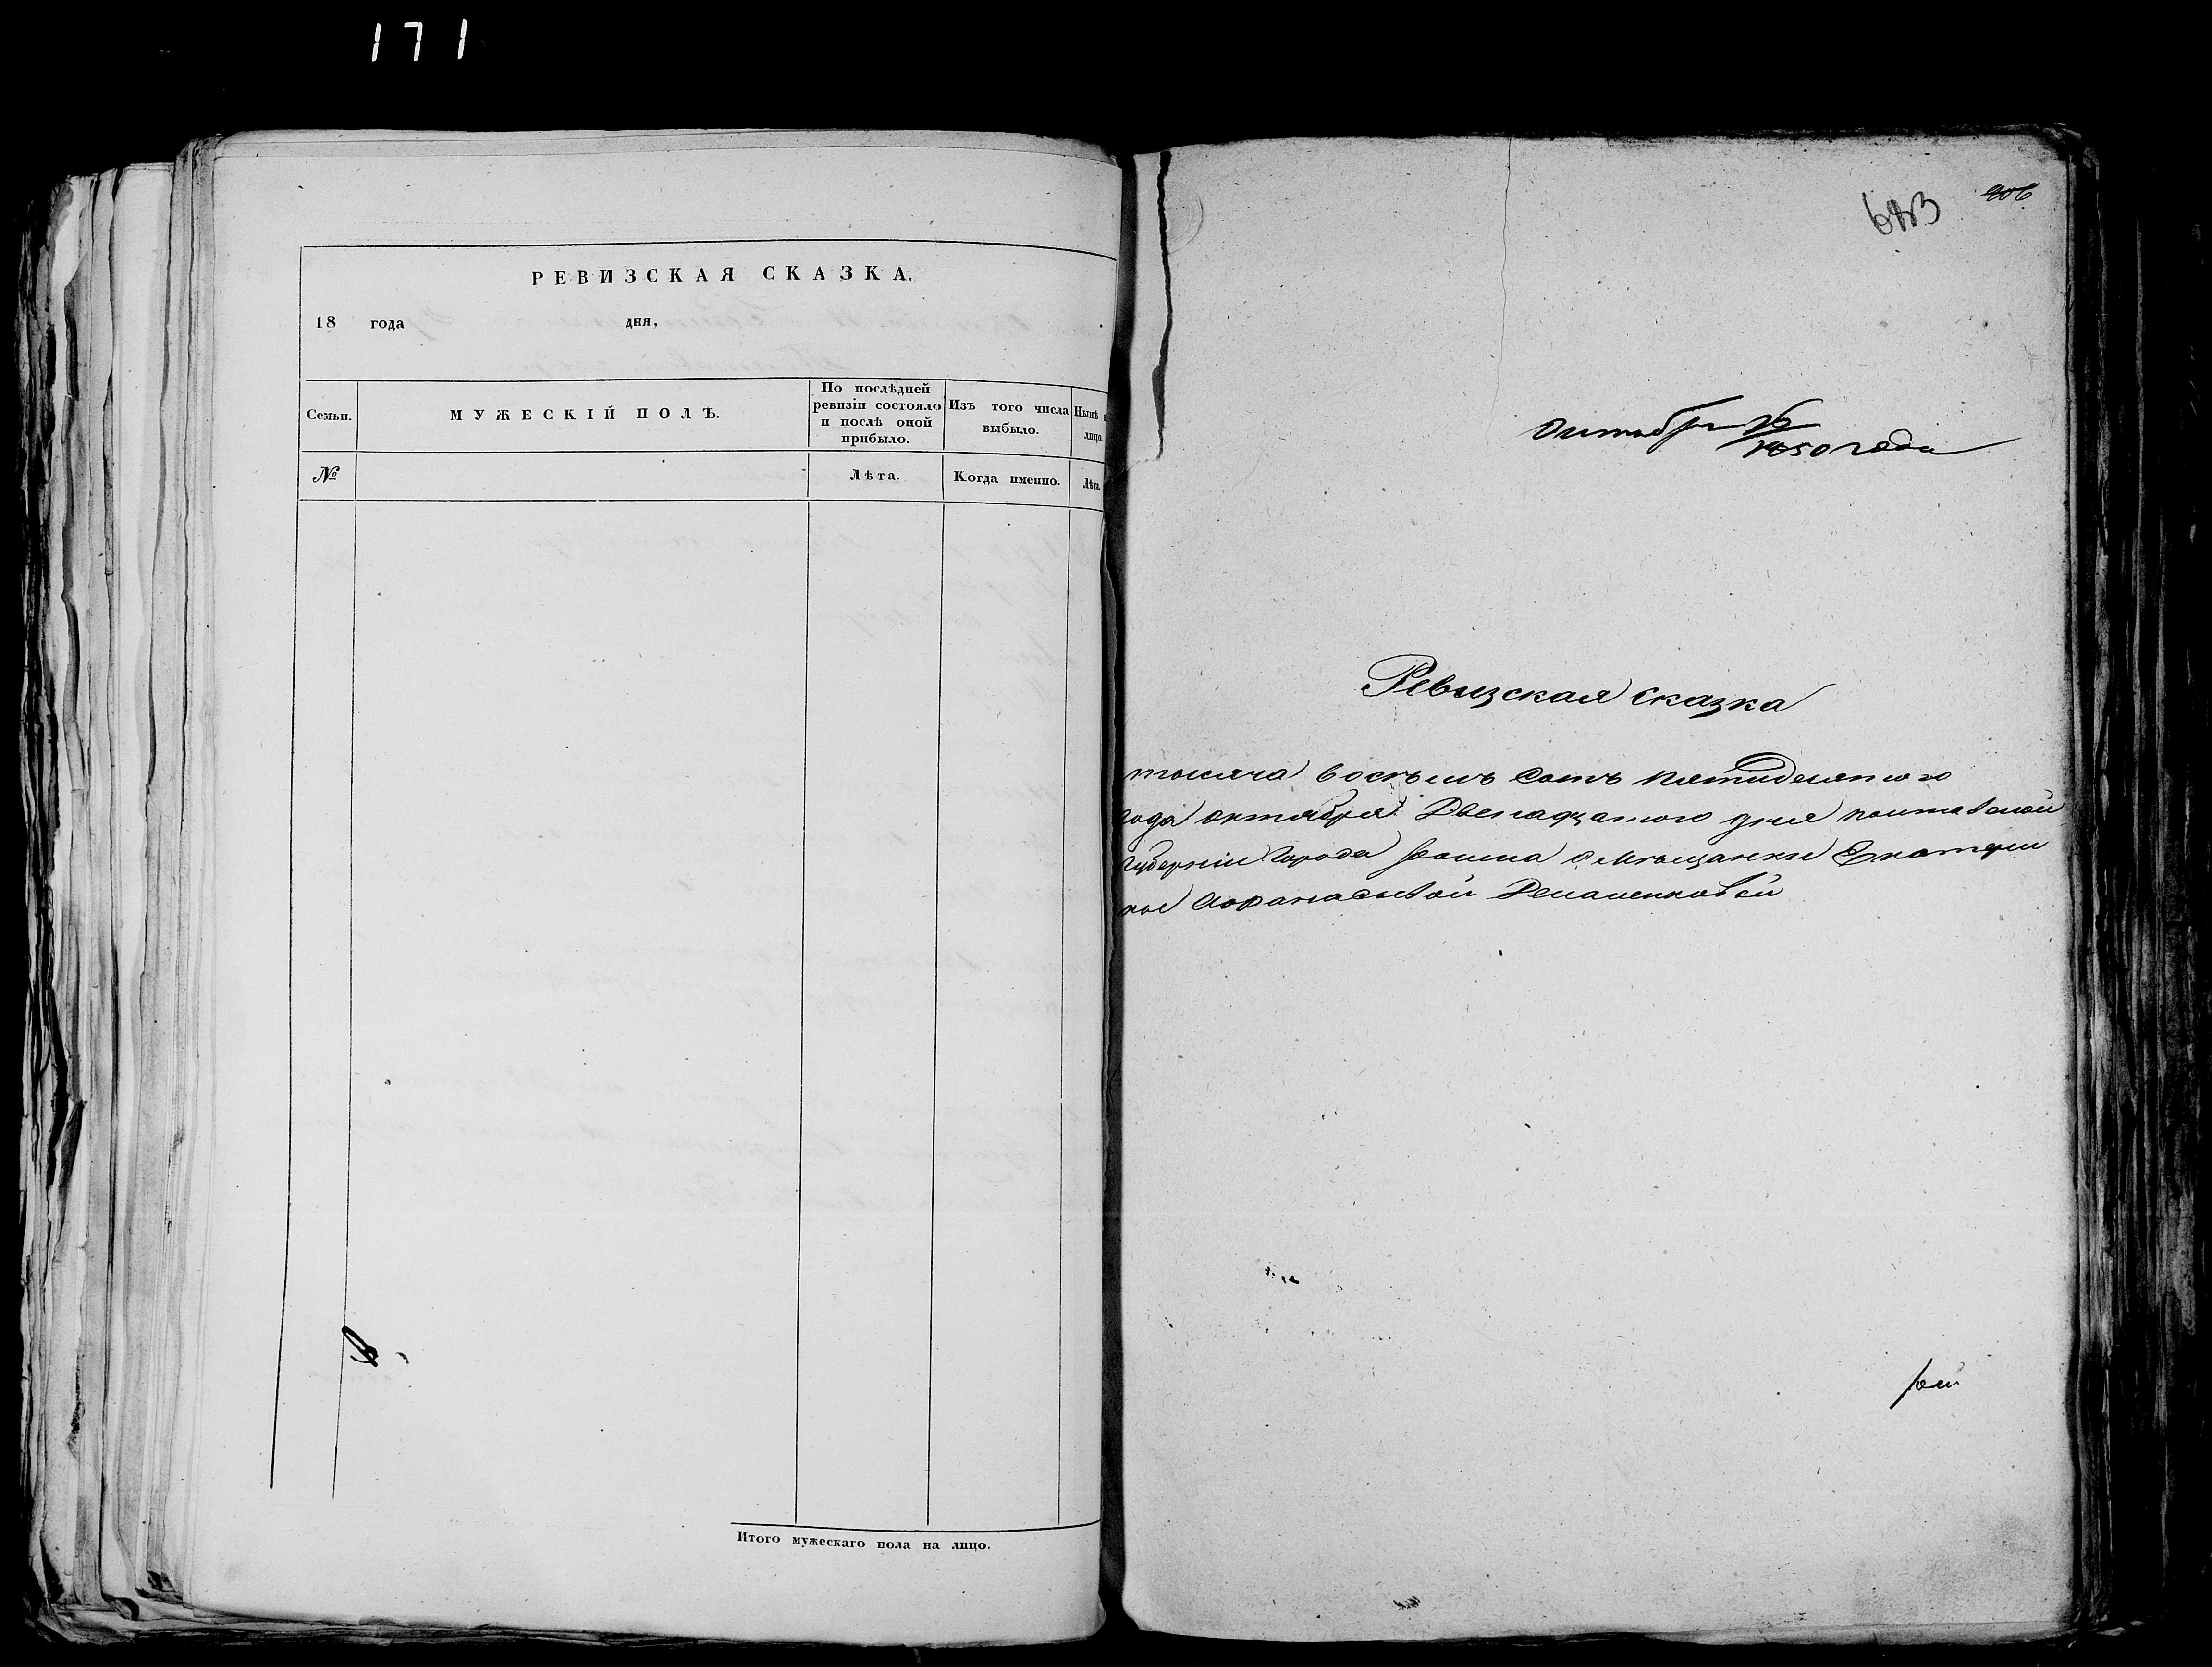 171
РЕВИЗСКАЯ СКАЗКА.
18 года дня,
Семьи.
МУЖЕСКІЙ ПОЛЪ.
По послѣдней ревизіи состояло и послѣ оной прибыло.
Изъ того числа выбыло.
Нынѣ
лицо.
№
Лѣта.
Когда именно.
Лѣта.
Итого мужескаго пола на лицо.
октября
1850 года
Ревизская сказка
тысяча восемь сотъ пятидесятого
года октября Двенадцатого дня полтавской
Губерніи Города о мещанки Екатери
ны Афанасьевой